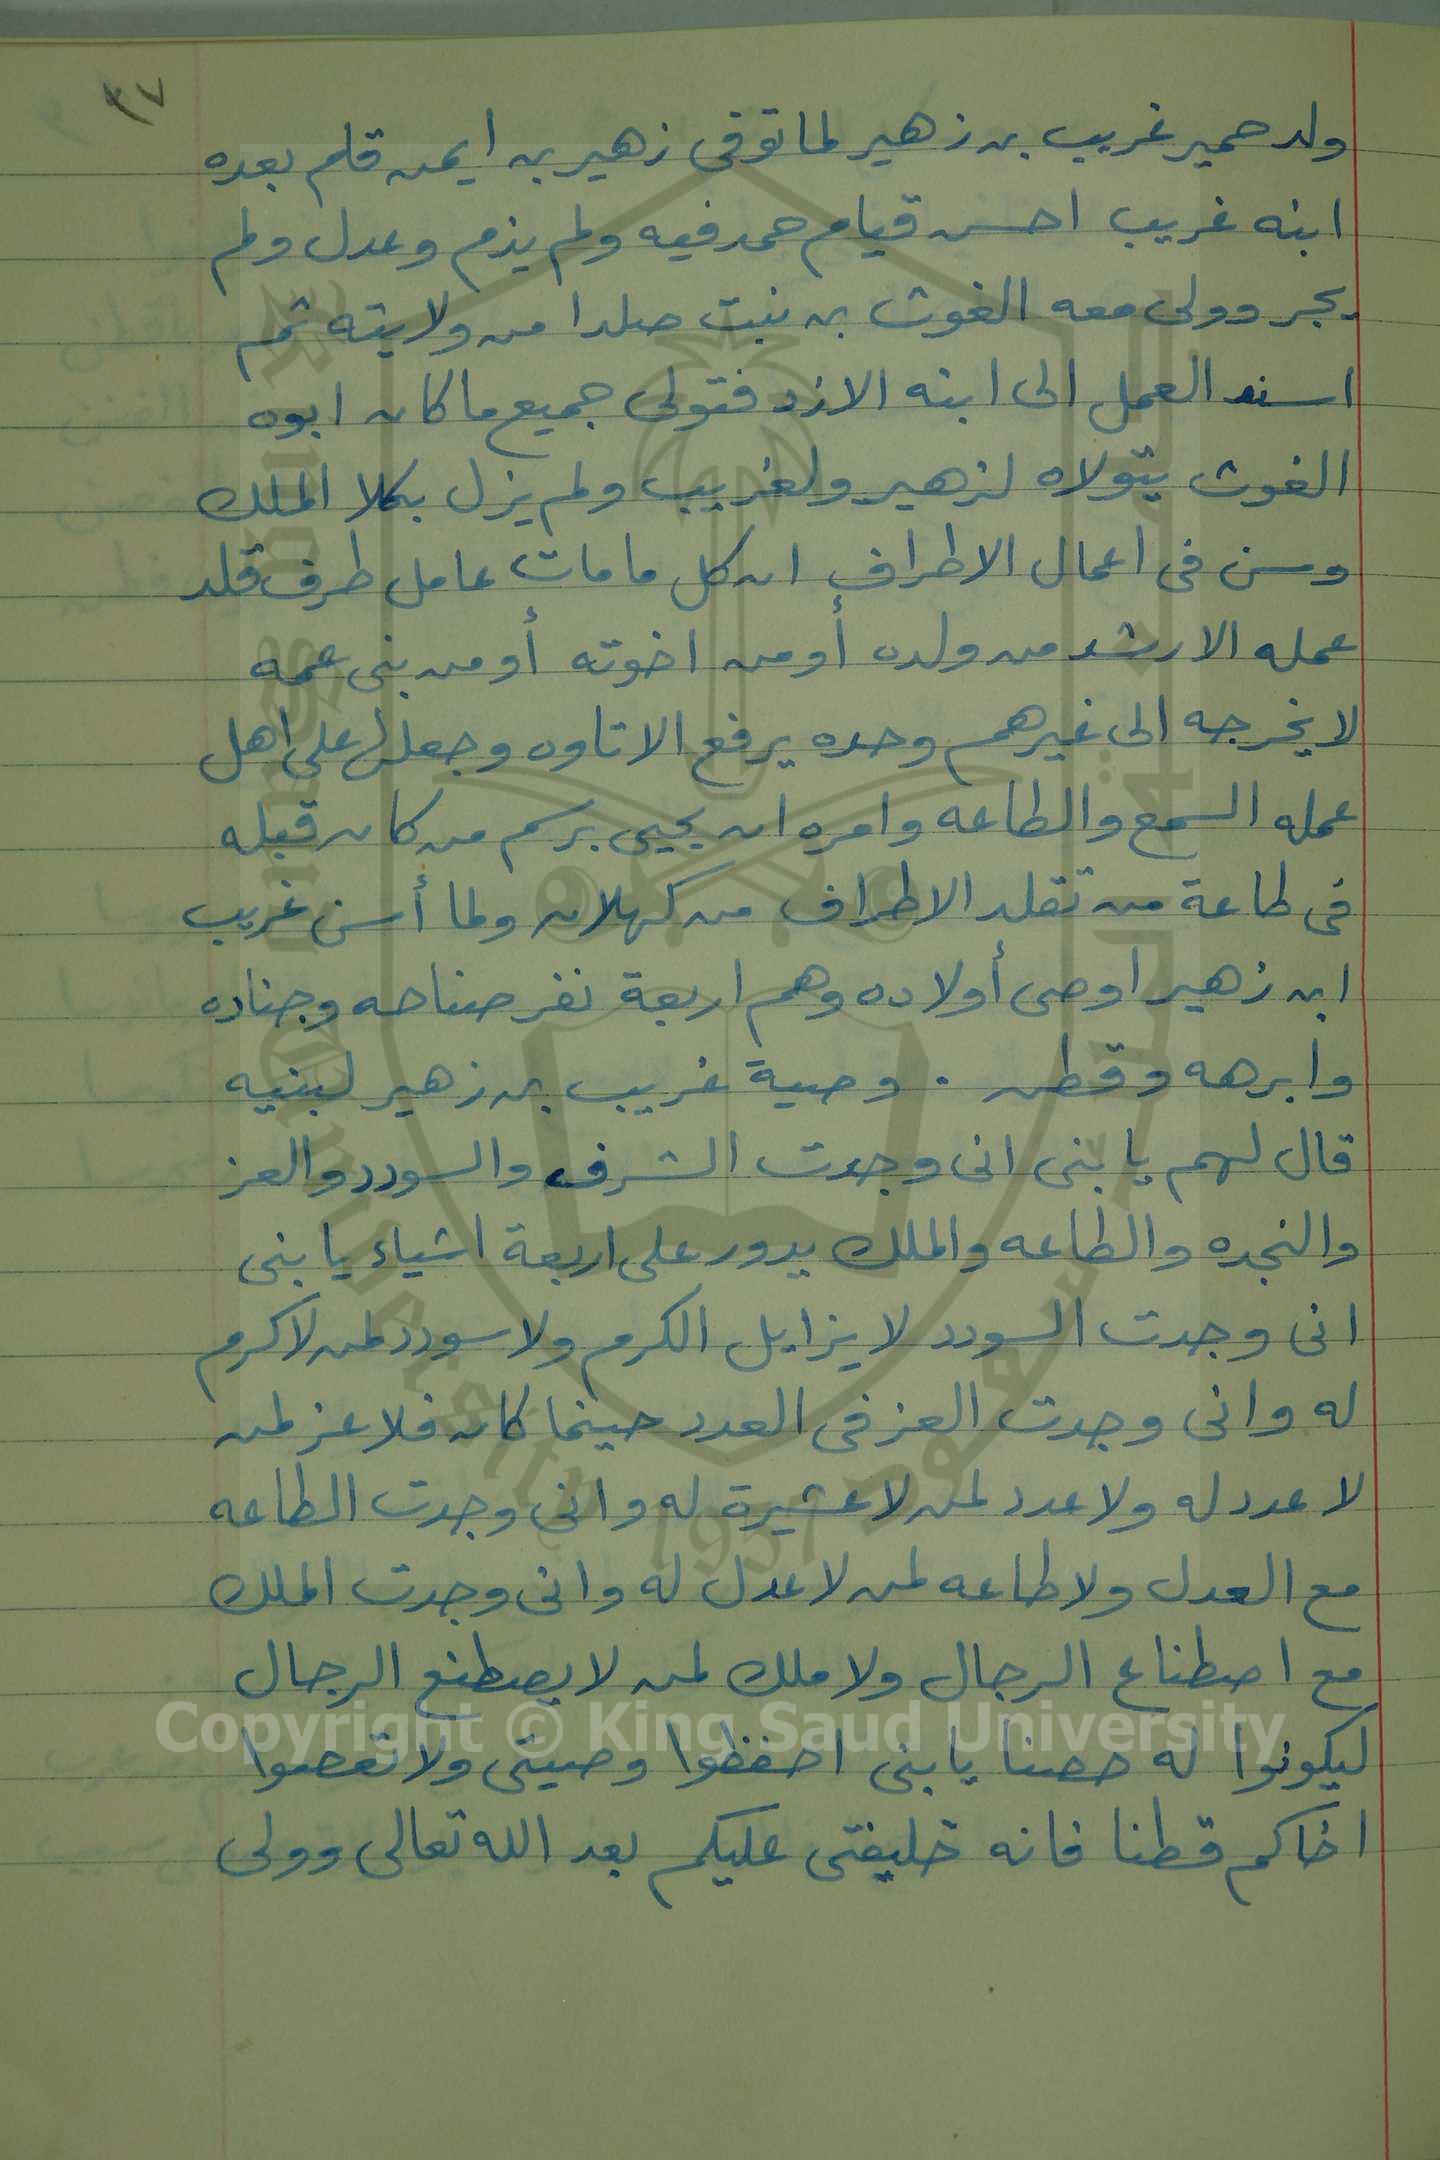 ٣٧
ولد حمير غريب بن زهير لما توفى زهير بن ايمن قام بعده
ابنه غريب احسن قيام حمد فيه ولم يذم وعدل ولم
يجر وولى معه الغوث بن نبت صلدا من ولايته ثم
اسند العمل الى ابنه الازد فتولى جميع ما كان ابوه
الغوث يتولاه لزهير ولغريب ولم يزل بكلا الملك
وسن فى اعمال الاطراف ان كل ما مات عامل طرف قلد
عمله الارشد من ولده أو من اخوته أو من بنى عمه
لا يخرجه الى غيرهم وحده يرفع الاتاوه وجعل له على اهل
عمله السمع والطاعه وامره ان يحيى برسم من كان قبله
فى طاعة من تقلد الاطراف من كهلان ولما أسن غريب
ابن زهير اوصى أولاده وهم اربعة نفر صناحه وجناده
وابرهه وقطن . وصية غريب بن زهير لبنيه
قال لهم يا بنى انى وجدت الشرف والسودد والعز
والنجده والطاعه والملك يدور على اربعة اشياء يا بنى
انى وجدت السودد لا يزايل الكرم ولا سودد لمن لا كرم
له وانى وجدت العز فى العدد حينما كان فلا عز لمن
لا عدد له ولا عدد لمن لا عشيرة له وانى وجدت الطاعه
مع العدل ولا طاعه لمن لا عدل له وانى وجدت الملك
مع اصطناع الرجال ولا ملك لمن لا يصطنع الرجال
ليكونوا له حصنا يا بنى احفظوا وصيتى ولا تعصوا
اخاكم قطنا فانه خليفتى عليكم بعد الله تعالى وولى
Copyright © King Saud University
King Saud University
1957
جامعة الملك سعود